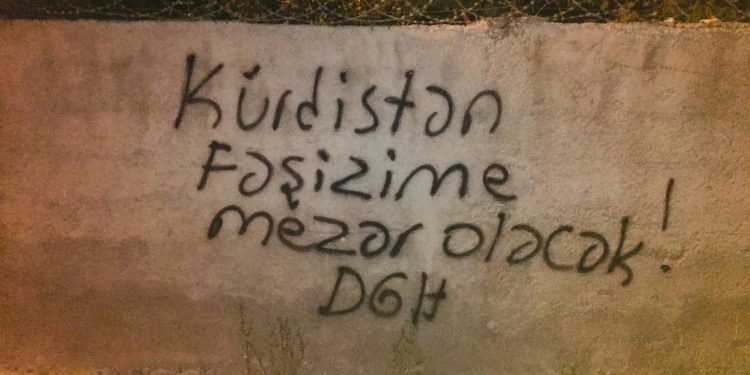 Kürdistan
Faşizime
mezar olacak!
DGH